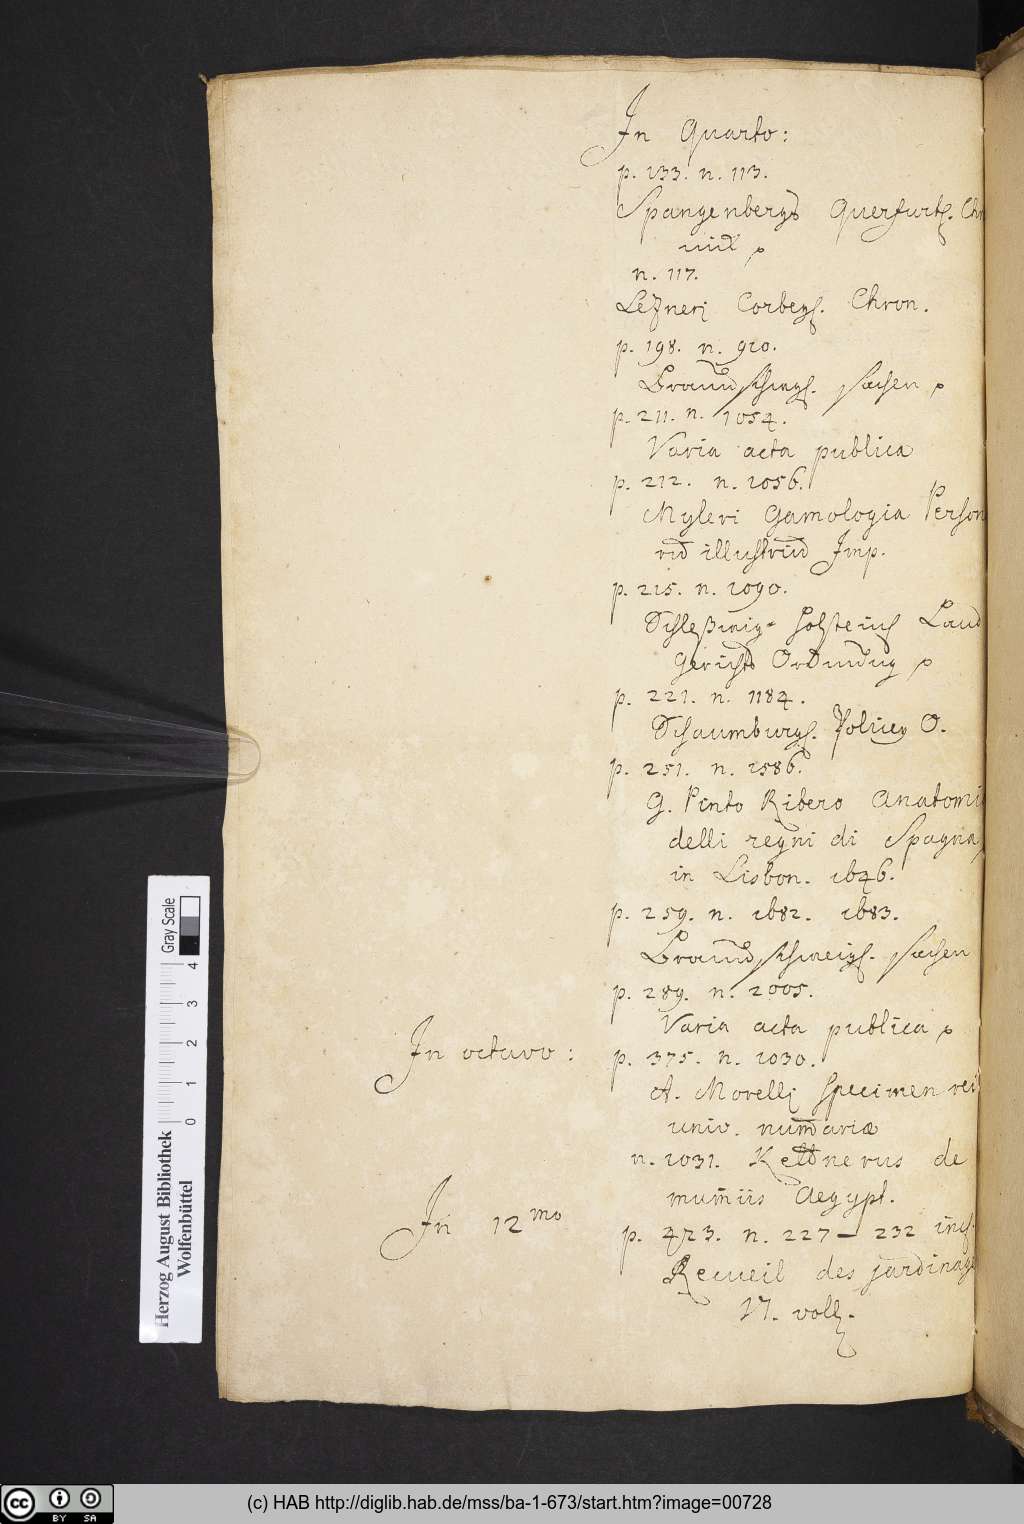 In Quarto:
p. 133. n. 113.
Spangenbergs Querfurth. Chro
nick
n. 117.
Lezneri Corbeys. Chron.
p. 198. n. 920.
Braunschweigs. sachen
p. 211. n. 1054.
Varia acta publica
p. 212. n. 1056.
Myleri Gamologia Person
rū illustriū Imp.
p. 215. n. 1090.
Schleßwig- Holstein Land
Gerichts Ordnung
p. 221. n. 1184.
Schaumburgs. Policey O.
p. 251. n. 1586.
G. Pinto Ribero Anatomi
delli regni di Spagna,
in Lisbon. 1646.
p. 259. n. 1682. 1683.
Braunschweigs. sachen
p. 289. n. 2005.
Varia acta publica
In octavo:
p. 375. n. 1030.
A. Morelli specimen rei
univ. num̄ariæ
n. 1031. Kettnerus de
mum̄iis Aegypt.
In 12mo
p. 473. n. 227 — 232 incl.
Recueil des jardinage
VI. voll.
Herzog August Bibliothek
Wolfenbüttel
0 1 2 3 4
Gray Scale
(c) HAB http://diglib.hab.de/mss/ba-1-673/start.htm?image=00728
cc BY SA